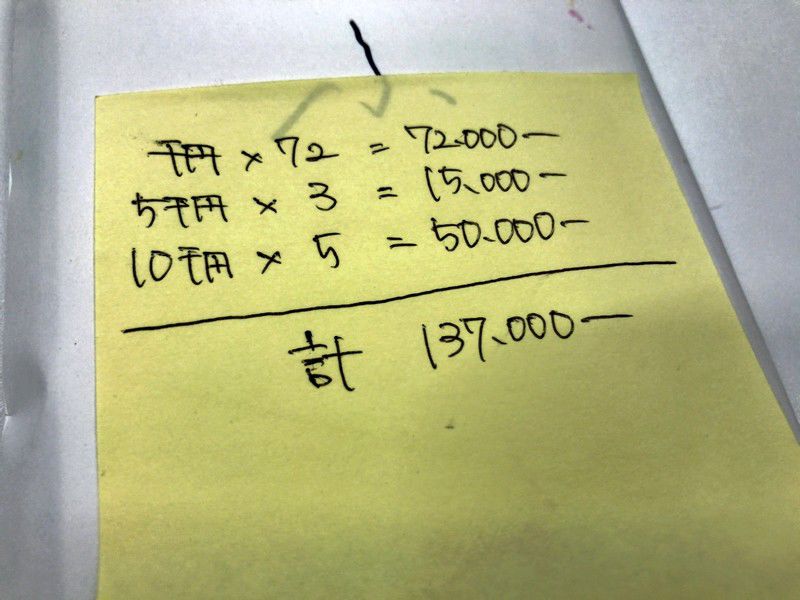 千円 × 72 = 72.000ー
5千円 × 3 = 15、000ー
10千円 × 5 = 50.000ー
計 137、000ー